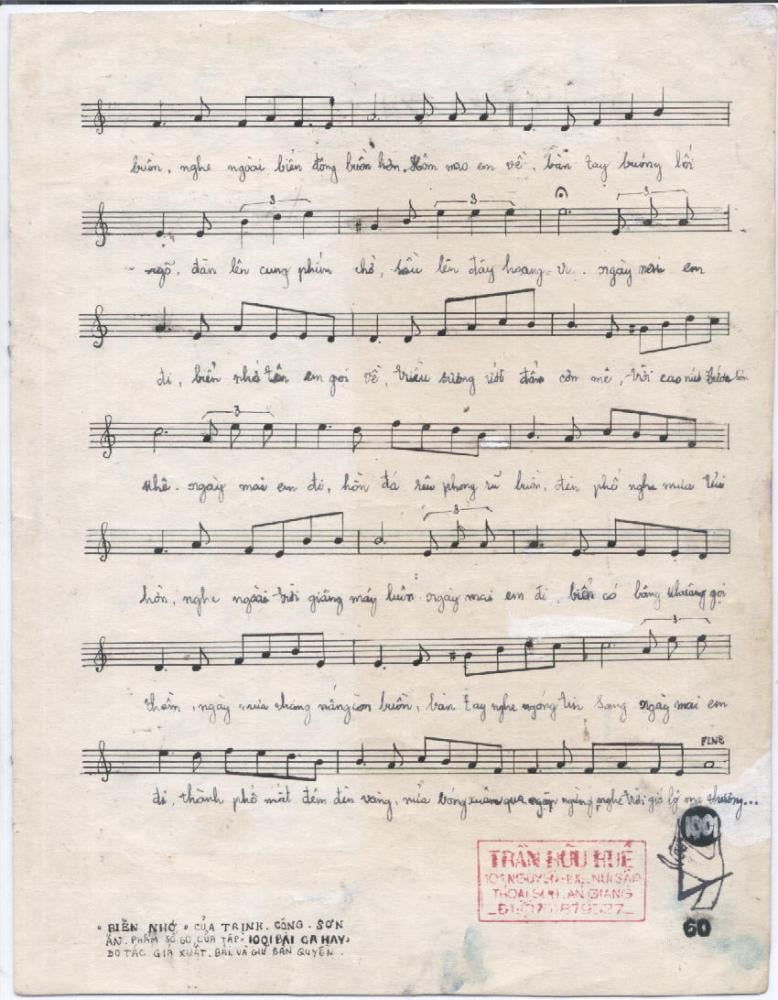 buồn, nghe ngoài biển động buồn hơn. Hôm nao em về, bàn tay buông lối
ngõ, đàn lên cung phím chờ, sầu lên đây hoang vu. ngày mai em
đi, biển nhớ tên em gọi về, triều sương ướt đẫm cơn mê, trời cao níu bước sơn
khê. ngày mai em đi, hồn đá rêu phong rũ buồn, đèn phố nghe mưa tủi
hờn, nghe ngoài trời giăng mây luôn. ngày mai em đi, biển có bâng khuâng gọi
thầm, ngày mưa tháng nắng còn buồn, bàn tay nghe ngóng tin sang. ngày mai em
FINE
đi, thành phố mắt đêm đèn vàng, nửa bóng xuân qua ngập ngừng, nghe trời gió lộng mà thương...
100
TRẦN HỮU HUẾ
NÚI SẬP
THOẠI SƠN AN GIANG
60
"BIỂN NHỚ" CỦA TRỊNH. CÔNG. SƠN
ẤN. PHẨM SỐ 60 CỦA TẬP. 100 BÀI CA HAY.
DO TÁC GIẢ XUẤT. BẢN VÀ GIỮ BẢN QUYỀN.